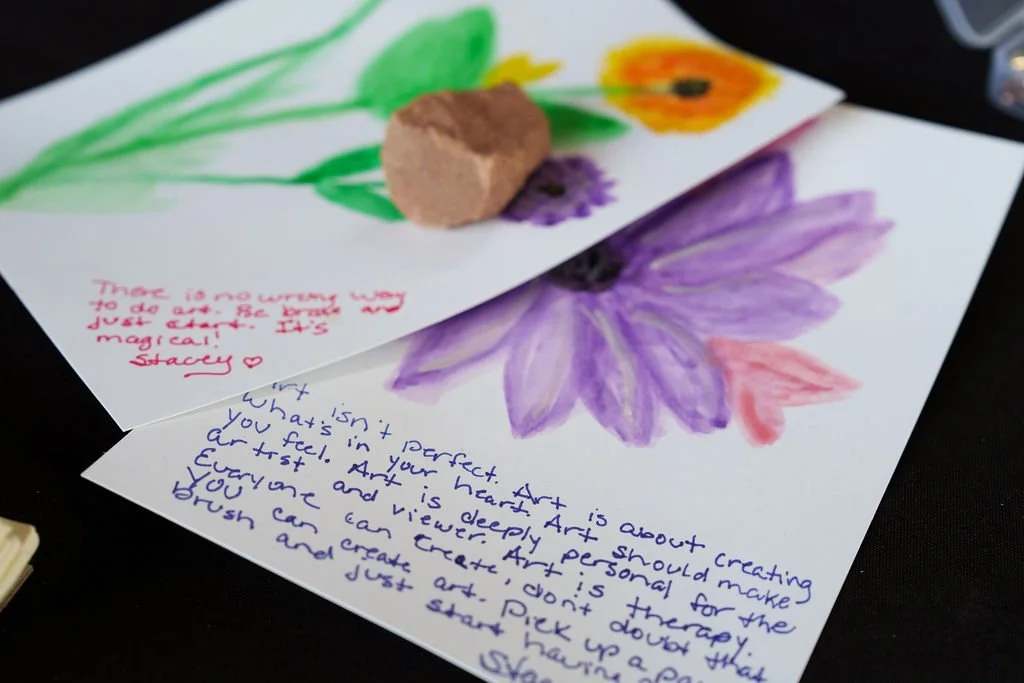 There is no wrong way
to do art. Be brave and
just start. It's
magical!
Stacey
Art isn't perfect. Art is about creating
what's in your heart. Art should make
you feel. Art is deeply personal for the
artist and viewer. Art is therapy.
Everyone can create, dont doubt that
you can create art. Pick up a
brush and just start having